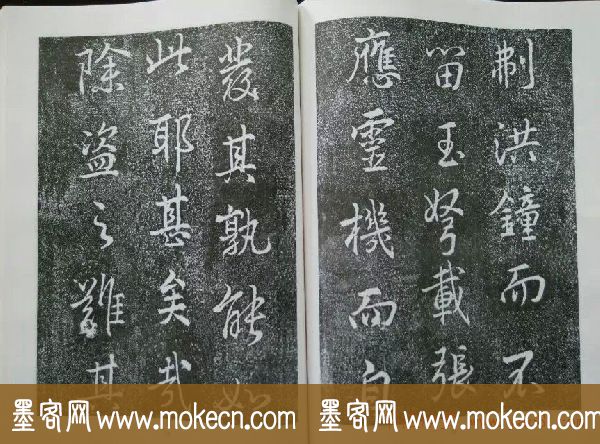 制洪鐘而不
留玉弩載張
應靈機而自
發其孰能如
此耶甚矣哉
除盜之難其
墨客网 www.mokecn.com 墨客网 www.mokecn.com